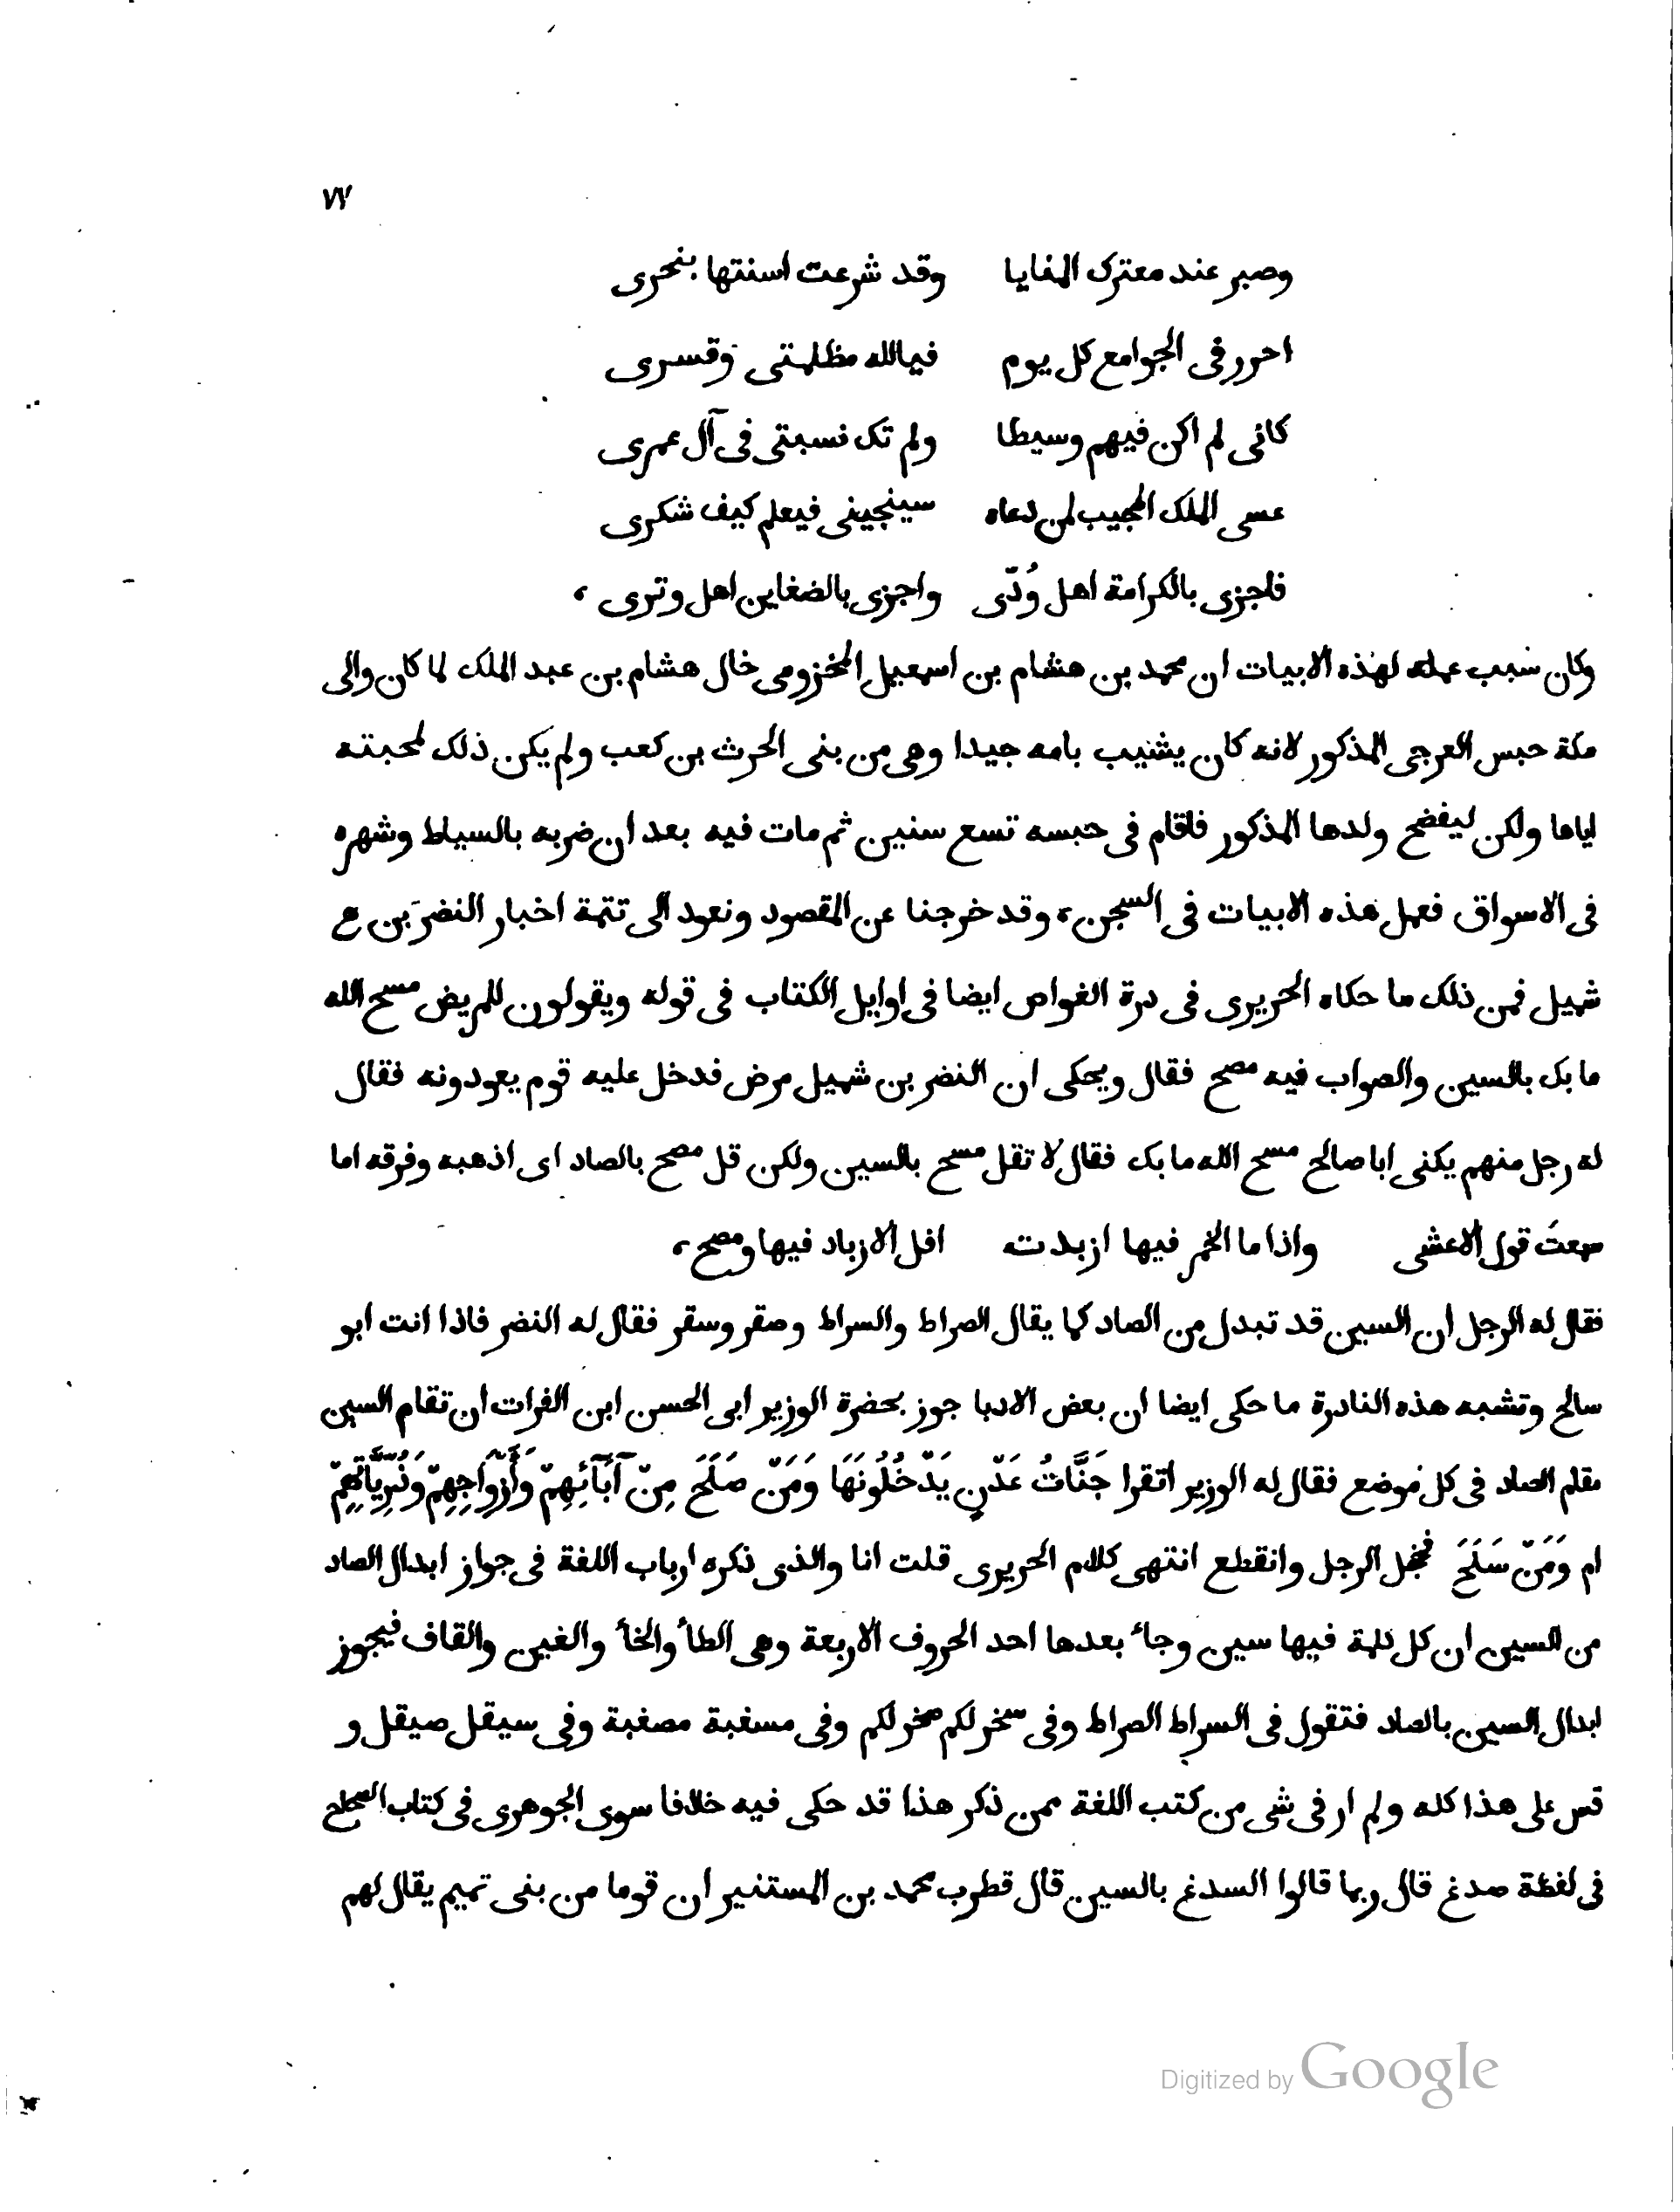 ٧٧
وصبر عند معترك المنايا وقد شرعت اسنتها بنحرى
اجرر فى الجوامع كل يوم فيالله مظلمتى وقسرى
كانى لم اكن فيهم وسيطا ولم تك نسبتى فى آل عمرى
عسى الملك المجيب لمن دعاه سينجينى فيعلم كيف شكرى
فاجزى بالكرامة اهل وُدّى واجزى بالضغاين اهل وترى ،
وكان سبب عمله لهذه الابيات ان محمد بن هشام بن اسمعيل المخزومى خال هشام بن عبد الملك لما كان والى
مكة حبس العرجى المذكور لانه كان يشبب بامه جيدا وهى من بنى الحرث بن كعب ولم يكن ذلك لمحبته
اياها ولكن ليفضح ولدها المذكور فاقام فى حبسه تسع سنين ثم مات فيه بعد ان ضربه بالسياط وشهره
فى الاسواق فعمل هذه الابيات فى السجن ، وقد خرجنا عن المقصود ونعود الى تتمة اخبار النضر بن ع
شميل فمن ذلك ما حكاه الحريرى فى درة الغواص ايضا فى اوايل الكتاب فى قوله ويقولون للمريض مسح الله
ما بك بالسين والصواب فيه مصح فقال ويحكى ان النضر بن شميل مرض فدخل عليه قوم يعودونه فقال
له رجل منهم يكنى ابا صالح مسح الله ما بك فقال لا تقل مسح بالسين ولكن قل مصح بالصاد اى اذهبه وفرقه اما
سمعتَ قول الاعشى واذا ما الخمر فيها ازبدت افل الازباد فيها ومصح ،
فقال له الرجل ان السين قد تبدل من الصاد كما يقال الصراط والسراط وصقر وسقر فقال له النضر فاذا انت ابو
سالح وتشبه هذه النادرة ما حكى ايضا ان بعض الادبا جوز بحضرة الوزير ابى الحسن ابن الفرات ان تقام السين
مقام الصاد فى كل موضع فقال له الوزير اتقرا جَنَّاتُ عَدْنٍ يَدْخُلُونَهَا وَمَنْ صَلَحَ مِنْ آبَآئِهِمْ وَأَزْوَاجِهِمْ وَذُرِّيَّاتِهِمْ
ام وَمَنْ سَلَحَ فخجل الرجل وانقطع انتهى كلام الحريرى قلت انا والذى ذكره ارباب اللغة فى جواز ابدال الصاد
من السين ان كل كلمة فيها سين وجاء بعدها احد الحروف الاربعة وهى الطأ والخأ والغين والقاف فيجوز
ابدال السين بالصاد فتقول فى السراط الصراط وفى سخر لكم صخر لكم وفى مسغبة مصغبة وفى سيقل صيقل و
قس على هذا كله ولم ار فى شى من كتب اللغة ممن ذكر هذا قد حكى فيه خلافا سوى الجوهرى فى كتاب الصحاح
فى لفظة صدغ قال ربما قالوا السدغ بالسين قال قطرب محمد بن المستنير ان قوما من بنى تميم يقال لهم
Digitized by Google